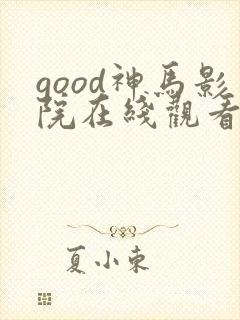 good神馬影
院在綫觀看
夏小東